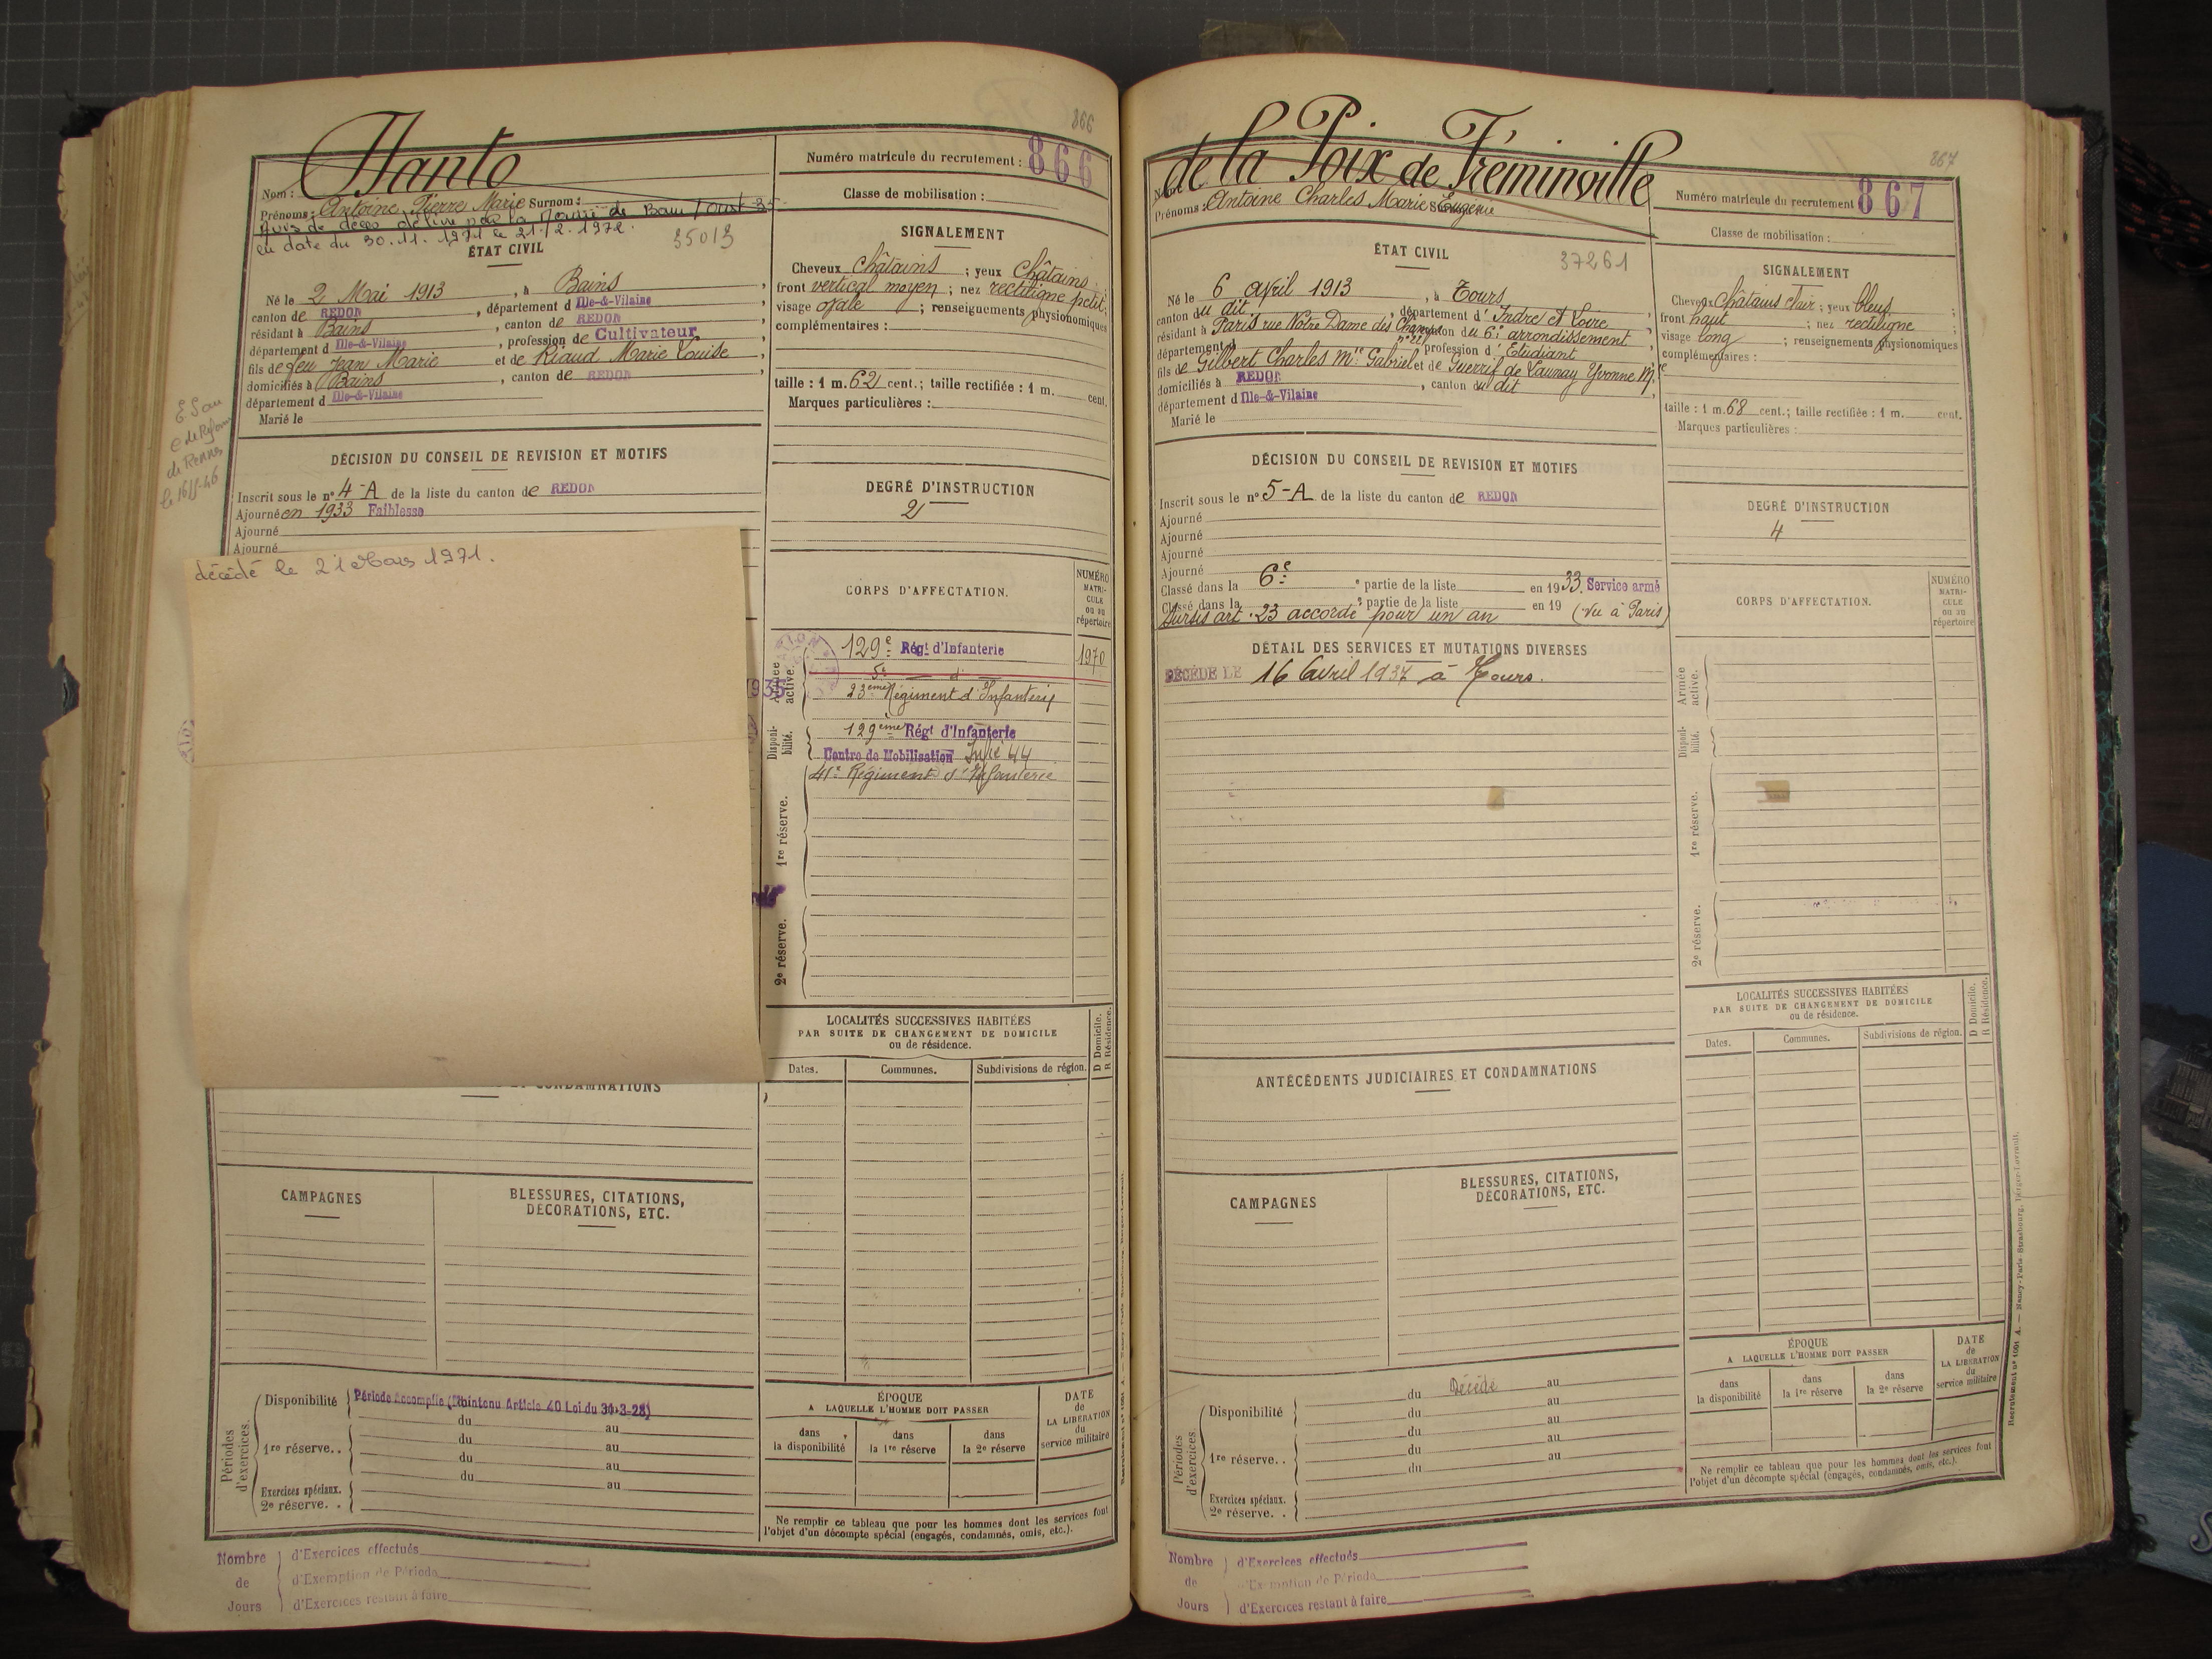 866
Hanto
Nom :
Prénoms : Antoine Pierre Marie Surnom :
Avis de décès délivré par la Mairie de Bain
en date du 30.11.1971 le 21.2.1972.
35013
Numéro matricule du recrutement : 866
Classe de mobilisation :
ÉTAT CIVIL
Né le 2 Mai 1913, à Bains,
canton de REDON, département d Ille-&-Vilaine
résidant à Bains, canton de REDON,
département d Ille-&-Vilaine, profession de Cultivateur
fils de feu Jean Marie et de Riaud Marie Louise,
domiciliés à Bains, canton de REDON
département d Ille-&-Vilaine
Marié le
SIGNALEMENT
Cheveux châtains ; yeux châtains ;
front vertical moyen ; nez rectiligne petit ;
visage ovale ; renseignements physionomiques
complémentaires :
taille : 1 m. 62 cent. ; taille rectifiée : 1 m. cent.
Marques particulières :
de Rennes
le 16
46
DÉCISION DU CONSEIL DE REVISION ET MOTIFS
Inscrit sous le n° 4-A de la liste du canton de REDON
Ajourné en 1933 Faiblesse
Ajourné
Ajourné
décédé le 21 Mars 1971.
DEGRÉ D'INSTRUCTION
2
CORPS D'AFFECTATION.
NUMÉRO MATRICULE ou au répertoire
Armée active.
129e Régt d'Infanterie 1970
23eme Régiment d'Infanterie
Disponibilité.
129ème Régt d'Infanterie
Centre de Mobilisation Inf 44
41e Régiment d'Infanterie
1re réserve.
2e réserve.
935
LOCALITÉS SUCCESSIVES HABITÉES
PAR SUITE DE CHANGEMENT DE DOMICILE
ou de résidence.
D Domicile.
R Résidence.
Dates. Communes. Subdivisions de région.
CONDAMNATIONS
CAMPAGNES
BLESSURES, CITATIONS,
DÉCORATIONS, ETC.
Périodes d'exercices.
Disponibilité Période Accomplie (Maintenu Article 40 Loi du 31-3-28)
du au
1re réserve. . du au
du au
du au
Exercices spéciaux.
2e réserve. .
ÉPOQUE
A LAQUELLE L'HOMME DOIT PASSER
dans la disponibilité
dans la 1re réserve
dans la 2e réserve
DATE de LA LIBÉRATION du service militaire
Ne remplir ce tableau que pour les hommes dont les services font
l'objet d'un décompte spécial (engagés, condamnés, omis, etc.).
Nombre de Jours
d'Exercices effectués
d'Exemption de Période
d'Exercices restant à faire
867
de la Poix de Fréminville
Nom :
Prénoms : Antoine Charles Marie Eugène
37261
Numéro matricule du recrutement 867
Classe de mobilisation :
ÉTAT CIVIL
Né le 6 avril 1913, à Tours,
canton du dit, département d'Indre et Loire
résidant à Paris rue Notre Dame des Champs, canton du 6e arrondissement
département d, profession d'Étudiant
fils de Gilbert Charles Mie Gabriel et de Guerrif de Launay Yvonne M.
domiciliés à REDON, canton du dit,
département d Ille-&-Vilaine
Marié le
SIGNALEMENT
Cheveux châtains clair ; yeux bleus ;
front haut ; nez rectiligne ;
visage long ; renseignements physionomiques
complémentaires :
taille : 1 m. 68 cent. ; taille rectifiée : 1 m. cent.
Marques particulières :
DÉCISION DU CONSEIL DE REVISION ET MOTIFS
Inscrit sous le n° 5-A de la liste du canton de REDON
Ajourné
Ajourné
Ajourné
Ajourné
Classé dans la 6e partie de la liste en 1933 Service armé
Classé dans la e partie de la liste en 19 (Vu à Paris)
Sursis art. 23 accordé pour un an
DEGRÉ D'INSTRUCTION
4
DÉTAIL DES SERVICES ET MUTATIONS DIVERSES
DÉCÉDÉ LE 16 Avril 1937 à Tours.
CORPS D'AFFECTATION.
NUMÉRO MATRICULE ou au répertoire
Armée active.
Disponibilité.
1re réserve.
2e réserve.
LOCALITÉS SUCCESSIVES HABITÉES
PAR SUITE DE CHANGEMENT DE DOMICILE
ou de résidence.
D Domicile.
R Résidence.
Dates. Communes. Subdivisions de région.
ANTÉCÉDENTS JUDICIAIRES ET CONDAMNATIONS
CAMPAGNES
BLESSURES, CITATIONS,
DÉCORATIONS, ETC.
Périodes d'exercices.
du Décédé au
Disponibilité du au
du au
du au
1re réserve. . du au
du
Exercices spéciaux.
2e réserve. .
ÉPOQUE
A LAQUELLE L'HOMME DOIT PASSER
dans la disponibilité
dans la 1re réserve
dans la 2e réserve
DATE de LA LIBÉRATION du service militaire
Ne remplir ce tableau que pour les hommes dont les services font
l'objet d'un décompte spécial (engagés, condamnés, omis, etc.).
Recrutement n° 1001 A. — Nancy-Paris-Strasbourg, Berger-Levrault.
Nombre de Jours
d'Exercices effectués
d'Exemption de Période
d'Exercices restant à faire